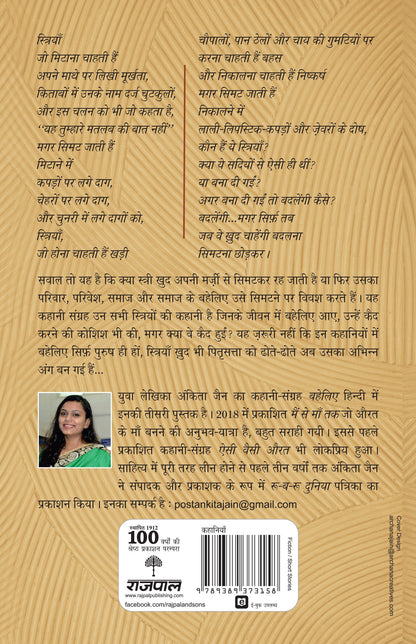 स्त्रियाँ
जो मिटाना चाहती हैं
अपने माथे पर लिखी मूर्खता,
किताबों में उनके नाम दर्ज चुटकुलों,
और इस चलन को भी जो कहता है,
‘‘यह तुम्हारे मतलब की बात नहीं’’
मगर सिमट जाती हैं
मिटाने में
कपड़ों पर लगे दाग,
चेहरों पर लगे दाग,
और चुनरी में लगे दागों को,
स्त्रियाँ,
जो होना चाहती हैं खड़ी
चौपालों, पान ठेलों और चाय की गुमटियों पर
करना चाहती हैं बहस
और निकालना चाहती हैं निष्कर्ष
मगर सिमट जाती हैं
निकालने में
लाली-लिपस्टिक-कपड़ों और ज़ेवरों के दोष,
कौन हैं ये स्त्रियाँ?
क्या ये सदियों से ऐसी ही थीं?
या बना दी गईं?
अगर बना दी गईं तो बदलेंगी कैसे?
बदलेंगी...मगर सिर्फ़ तब
जब वे ख़ुद चाहेंगी बदलना
सिमटना छोड़कर।
सवाल तो यह है कि क्या स्त्री ख़ुद अपनी मर्ज़ी से सिमटकर रह जाती है या फिर उसका
परिवार, परिवेश, समाज और समाज के बहेलिए उसे सिमटने पर विवश करते हैं। यह
कहानी संग्रह उन सभी स्त्रियों की कहानी है जिनके जीवन में बहेलिए आए, उन्हें कैद
करने की कोशिश भी की, मगर क्या वे कैद हुईं? यह ज़रूरी नहीं कि इन कहानियों में
बहेलिए सिर्फ़ पुरुष ही हों, स्त्रियाँ ख़ुद भी पितृसत्ता को ढोते-ढोते अब उसका अभिन्न
अंग बन गई हैं...
युवा लेखिका अंकिता जैन का कहानी-संग्रह बहेलिए हिन्दी में
इनकी तीसरी पुस्तक है। 2018 में प्रकाशित मैं से माँ तक जो औरत
के माँ बनने की अनुभव-यात्रा है, बहुत सराही गयी। इससे पहले
प्रकाशित कहानी-संग्रह ऐसी वैसी औरत भी लोकप्रिय हुआ।
साहित्य में पूरी तरह लीन होने से पहले तीन वर्षों तक अंकिता जैन
ने संपादक और प्रकाशक के रूप में रू-ब-रू दुनिया पत्रिका का
प्रकाशन किया। इनका सम्पर्क है : postankitajain@gmail.com
स्थापित 1912
100 वर्षों की
श्रेष्ठ प्रकाशन परम्परा
राजपाल
www.rajpalpublishing.com
facebook.com/rajpalandsons
कहानियाँ
9789389373158
Fiction / Short Stories
ई-बुक उपलब्ध
Cover Design